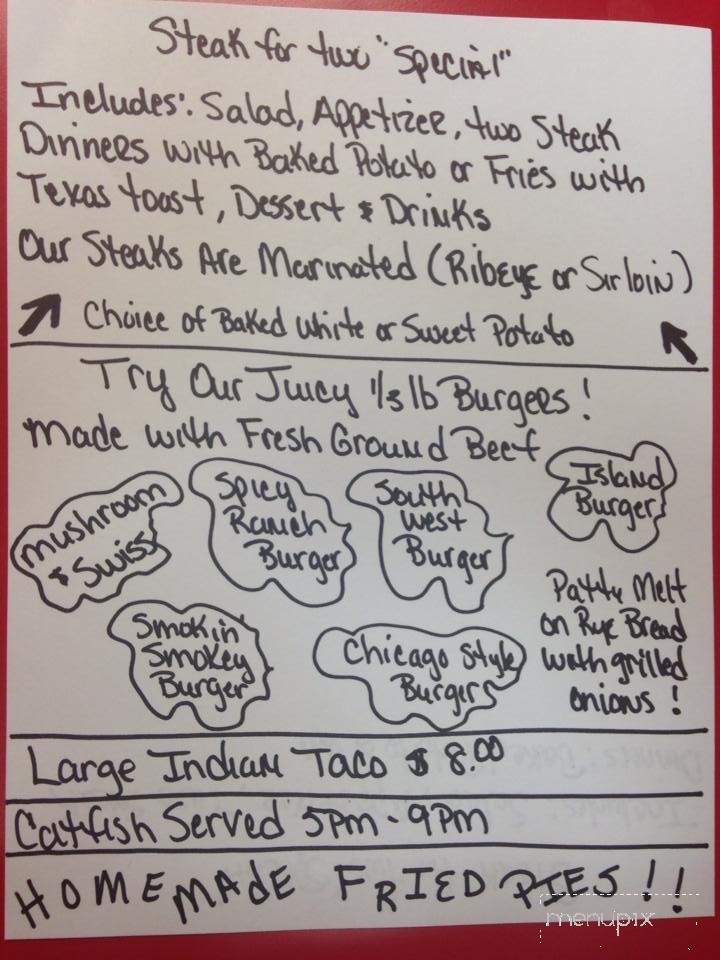 Steak for two "Special"
Includes: Salad, Appetizer, two Steak
Dinners with Baked Potato or Fries with
Texas toast, Dessert & Drinks
Our Steaks Are Marinated (Ribeye or Sirloin)
Choice of Baked White or Sweet Potato
Try Our Juicy 1/3 lb Burgers!
made with Fresh Ground Beef
mushroom
& Swiss
Spicy
Ranch
Burger
South
West
Burger
Island
Burger
Smokin
Smokey
Burger
Chicago Style
Burgers
Patty Melt
on Rye Bread
with grilled
onions!
Large Indian Taco $8.00
Catfish Served 5pm - 9pm
HOMEMADE FRIED PIES!!
menupix